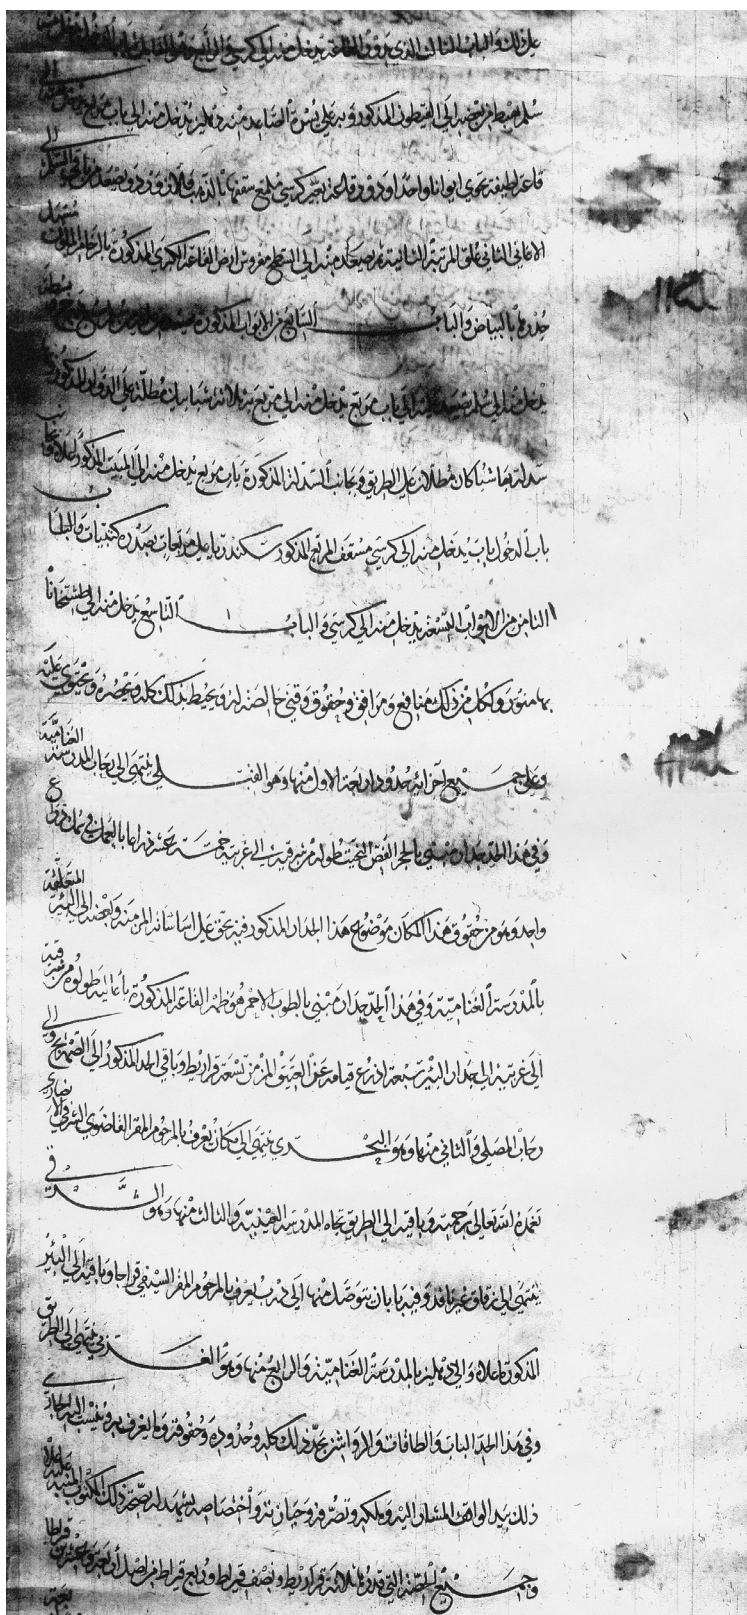 على ذلك والباب الثالث الذي بدور القاعة يدخل منه الى كرسي
سلم يهبط من تحته الى القيطون المذكور وبه على يسرة الصاعد منه دهليز يدخل منه الى باب مربع يدخل منه الى
قاعة لطيفة تحوي ايوانا واحدا ودور قاعة بغير كرسي ملمع سقفها بالذهب
الاغاني الثاني علو المرتبة الثانية ثم يصعد منه الى السطح مفروش ارض القاعة الكبرى المذكورة بالرخام الملون
جدرها بالبياض والباب السابع من الابواب المذكورة
يدخل منه الى سلم يصعد منه الى باب مربع يدخل منه الى مربع به ثلاثة شبابيك مطلة على الدوار المذكور
سدلة بها شباكان مطلان على الطريق وبجانب السدلة المذكورة باب مربع يدخل منه الى المبيت المذكور اعلاه
باب الدخول باب يدخل منه الى كرسي مسقف المربع المذكور سكندريا على مربعات بصدره كتبيات والباب
الثامن من الابواب التسعة يدخل منه الى كرسي والباب التاسع يدخل منه الى طشتخاناه
بها منور ولكل من ذلك منافع ومرافق وحقوق وقني خالصة له ويحيط بذلك كله ويحصره ويحتوي عليه
وعلى جميع اجزائه حدود اربعة الاول منها وهو القبلي ينتهي الى رحاب المدرسة الغنامية
وفي هذا الحد جدار مبني بالحجر الفص النحيت طوله من شرقيه الى غربيه خمسة عشر ذراعا بالعمل
واحد وهو من حقوق هذا المكان موضوع هذا الجدار المذكور فيه بحق على اساساته المزمنة وبعضه الى البئر المتعلقة
بالمدرسة الغنامية وفي هذا الحد جدار مبني بالطوب الاحمر هو ظهر القاعة المذكورة باعاليه طوله من شرقيه
الى غربيه الى جدار البئر سبعة اذرع قيامه عن العتيق المزمن تسعة قراريط وباقي الحد المذكور الى الصهريج والى
رحاب المصلى والثاني منها وهو البحري ينتهي الى مكان يعرف بالمرحوم المقر القاضوي الشرفي الانصاري
تغمده الله تعالى برحمته وباقيه الى الطريق تجاه المدرسة العينية والثالث منها وهو الشرقي
ينتهي الى زقاق غير نافذ وفيه بابان يتوصل منها الى درب يعرف بالمرحوم المقر السيفي قراجا وباقيه الى البئر
المذكورة اعلاه والى دهليز بالمدرسة الغنامية والرابع منها وهو الغربي ينتهي الى الطريق
وفي هذا الحد الباب والطاقات والرواشن بحد ذلك كله وحدوده وحقوقه وما يعرف به وينسب اليه الجاري
ذلك بيد الواقف المشار اليه وملكه وتصرفه وحيازته واختصاصه يشهد له بصحة ذلك المكتوب المنبه عليه اعلاه
وجميع الحصة التي قدرها ثلاثة قراريط ونصف قيراط وربع قيراط من اصل اربعة وعشرين قيراطا